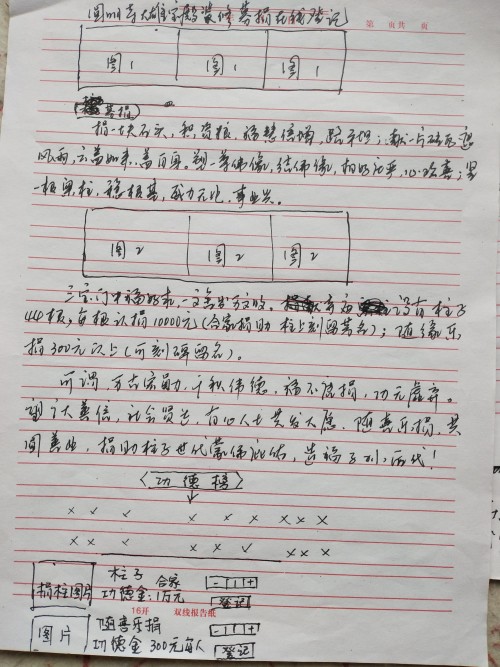 第 页共 页
大雄宝殿装修募捐在线登记
图1 图1 图1
募捐
捐一块石瓦,积资粮,福慧倍增,路平坦;献一片砖瓦,
风雨,云盖如来,盖自身。塑一尊佛像,结佛缘,相好庄严,心欢喜;
一根梁柱,稳根基,威力无比,事业兴。
图2 图2 图2
三宝门中福好求,一文喜舍万文收。 设有柱子
44根,每根认捐10000元(合家捐助 柱上刻留芳名);随缘乐
捐300元以上(可刻碑留名)。
可谓,万古宏勋,千秋伟德,福不虚捐,功无虚弃。
望十大善信,社会贤达,有心人士共发大愿,随喜乐捐,共
圆善业,捐助柱子世代蒙佛庇佑,造福子孙后代!
功德榜
× × ✓ × × × × × ×
× × ✓ × × ✓ × × ×
捐柱图片 柱子 合家 - 1 +
功德金:1万元 登记
16开 双线报告纸
图片 随喜乐捐 - 1 +
功德金 300元每人 登记